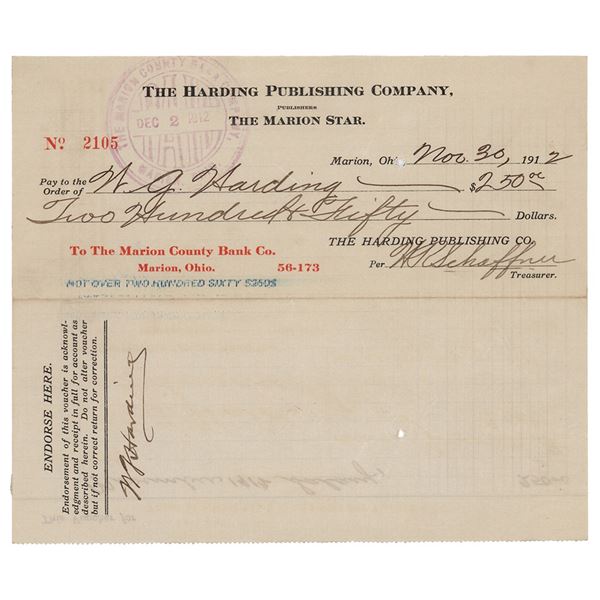 THE HARDING PUBLISHING COMPANY,
PUBLISHERS
THE MARION STAR.
THE MARION COUNTY BANK COMPANY
DEC 2 1912
No 2105
Marion, Oh Nov. 30, 1912
Pay to the Order of W. G. Harding $250 00
Two Hundred & Fifty Dollars.
To The Marion County Bank Co.
Marion, Ohio. 56-173
THE HARDING PUBLISHING CO.
Per HRSchaffner
Treasurer.
NOT OVER TWO HUNDRED SIXTY $260$
ENDORSE HERE.
Endorsement of this voucher is acknowl-
edgment and receipt in full for account as
described herein. Do not alter voucher
but if not correct return for correction.
WGHarding
This Voucher for